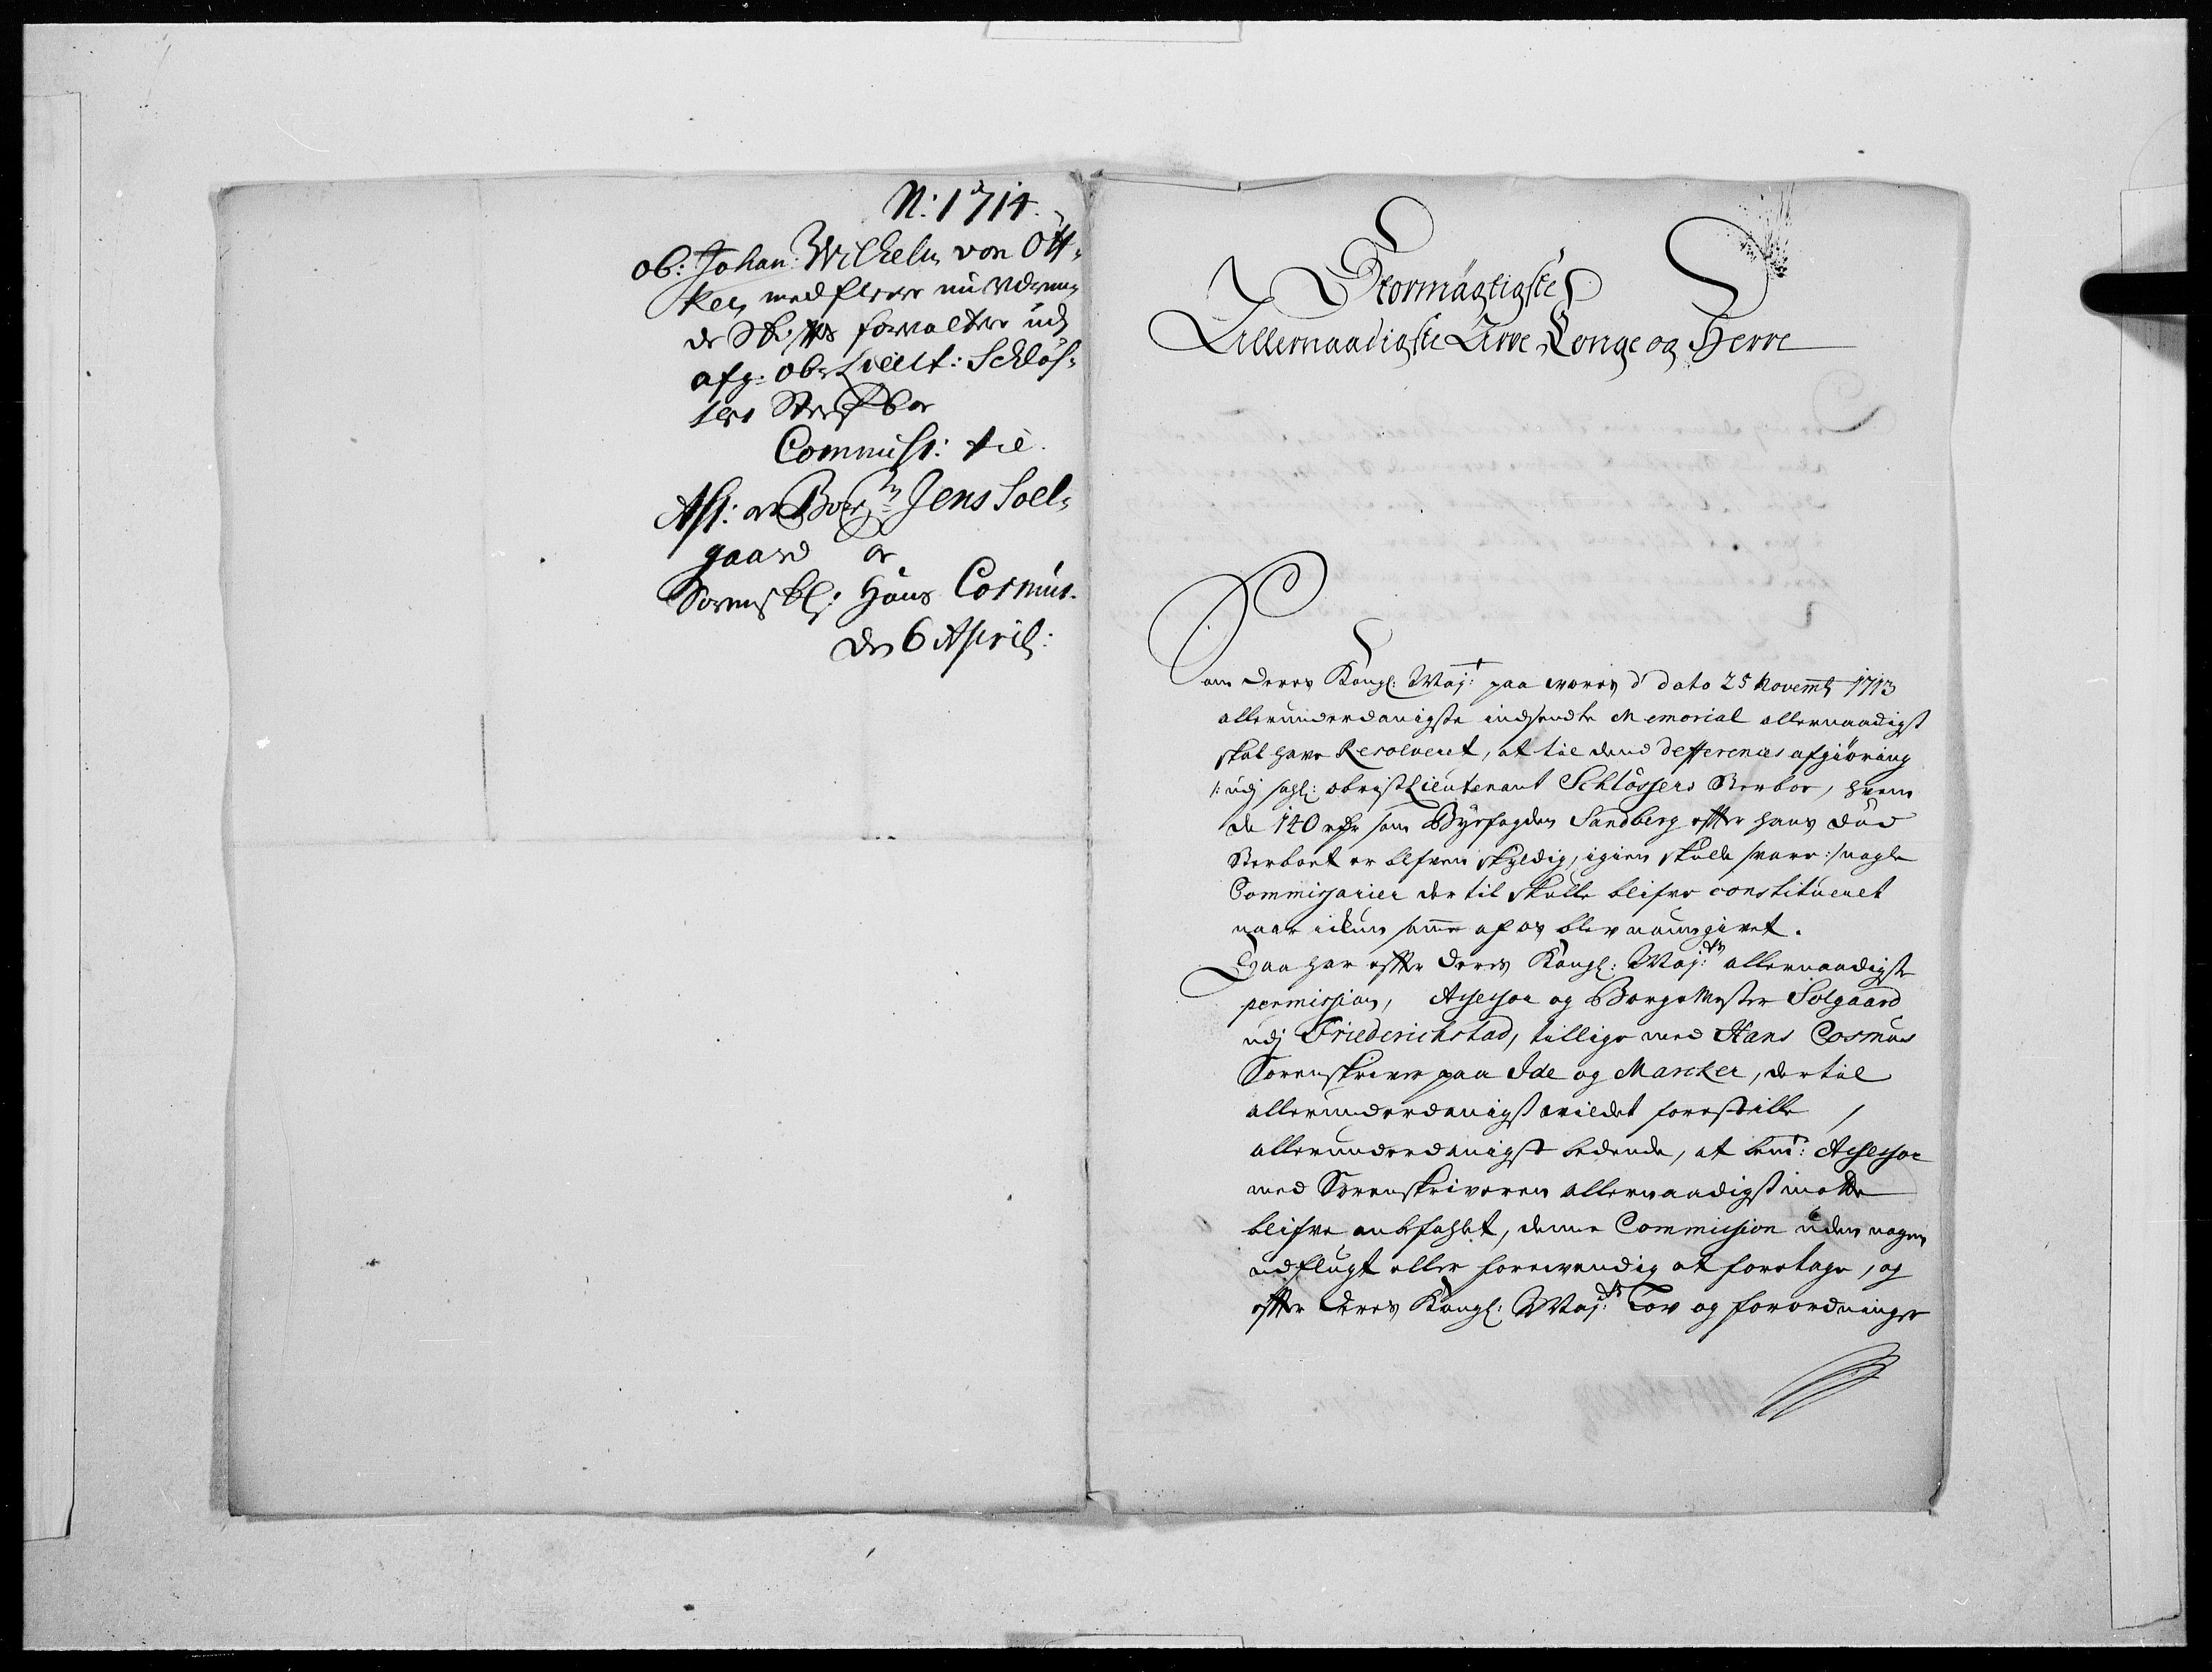 N: 1714.
ob: Johan: Wilhelm von Ott-
ken, med fleere nu værren-
de Skiftes forvaltere udj
afg: Ob: Lieut: Schlös-
sers Sterfboe
Commiss: til
Ass: oc Borgm: Jens Soel-
gaard oc
Sorenskr: Hans Cosmus.
den 6 April:
Stormägtigste
Allernaadigste Arve Konge og Herre
Som Deres Kongl: Mayt: paa vores d dato 25 Novemb 1713
allerunderdanigste indsendte Memorial allernaadigst
skal have Resolveret, at til dend defferences afgiöring
/: udj sahl: obristLieutenant Schlössers Sterboe, hvem
de 140 rdr som Byefogden Sandberg effter hans död
Sterboet er blefven skyldig, igien skulle svare :/ nogle
Commissarier der til skulle blifve constitueret
naar ickun samme af os blev naungivet.
Saa har effter Deres Kongl: Maj:ts allernaadigste
permission, Assessor og BorgeMester Solgaard
udj Friederichstad, tillige med Hans Cosmus
Sorenskriver paa Ide og Marcker, der til
allerunderdanigst vildet forestille /
allerunderdanigst bedende, at bemt: Assessor
med Sorenskriveren allernaadigst motte
blifve anbefahlet, denne Commission uden nogen
udflugt eller forevending at foretage, og
effter Deres Kongl: Maj:ts Lov og forordninger